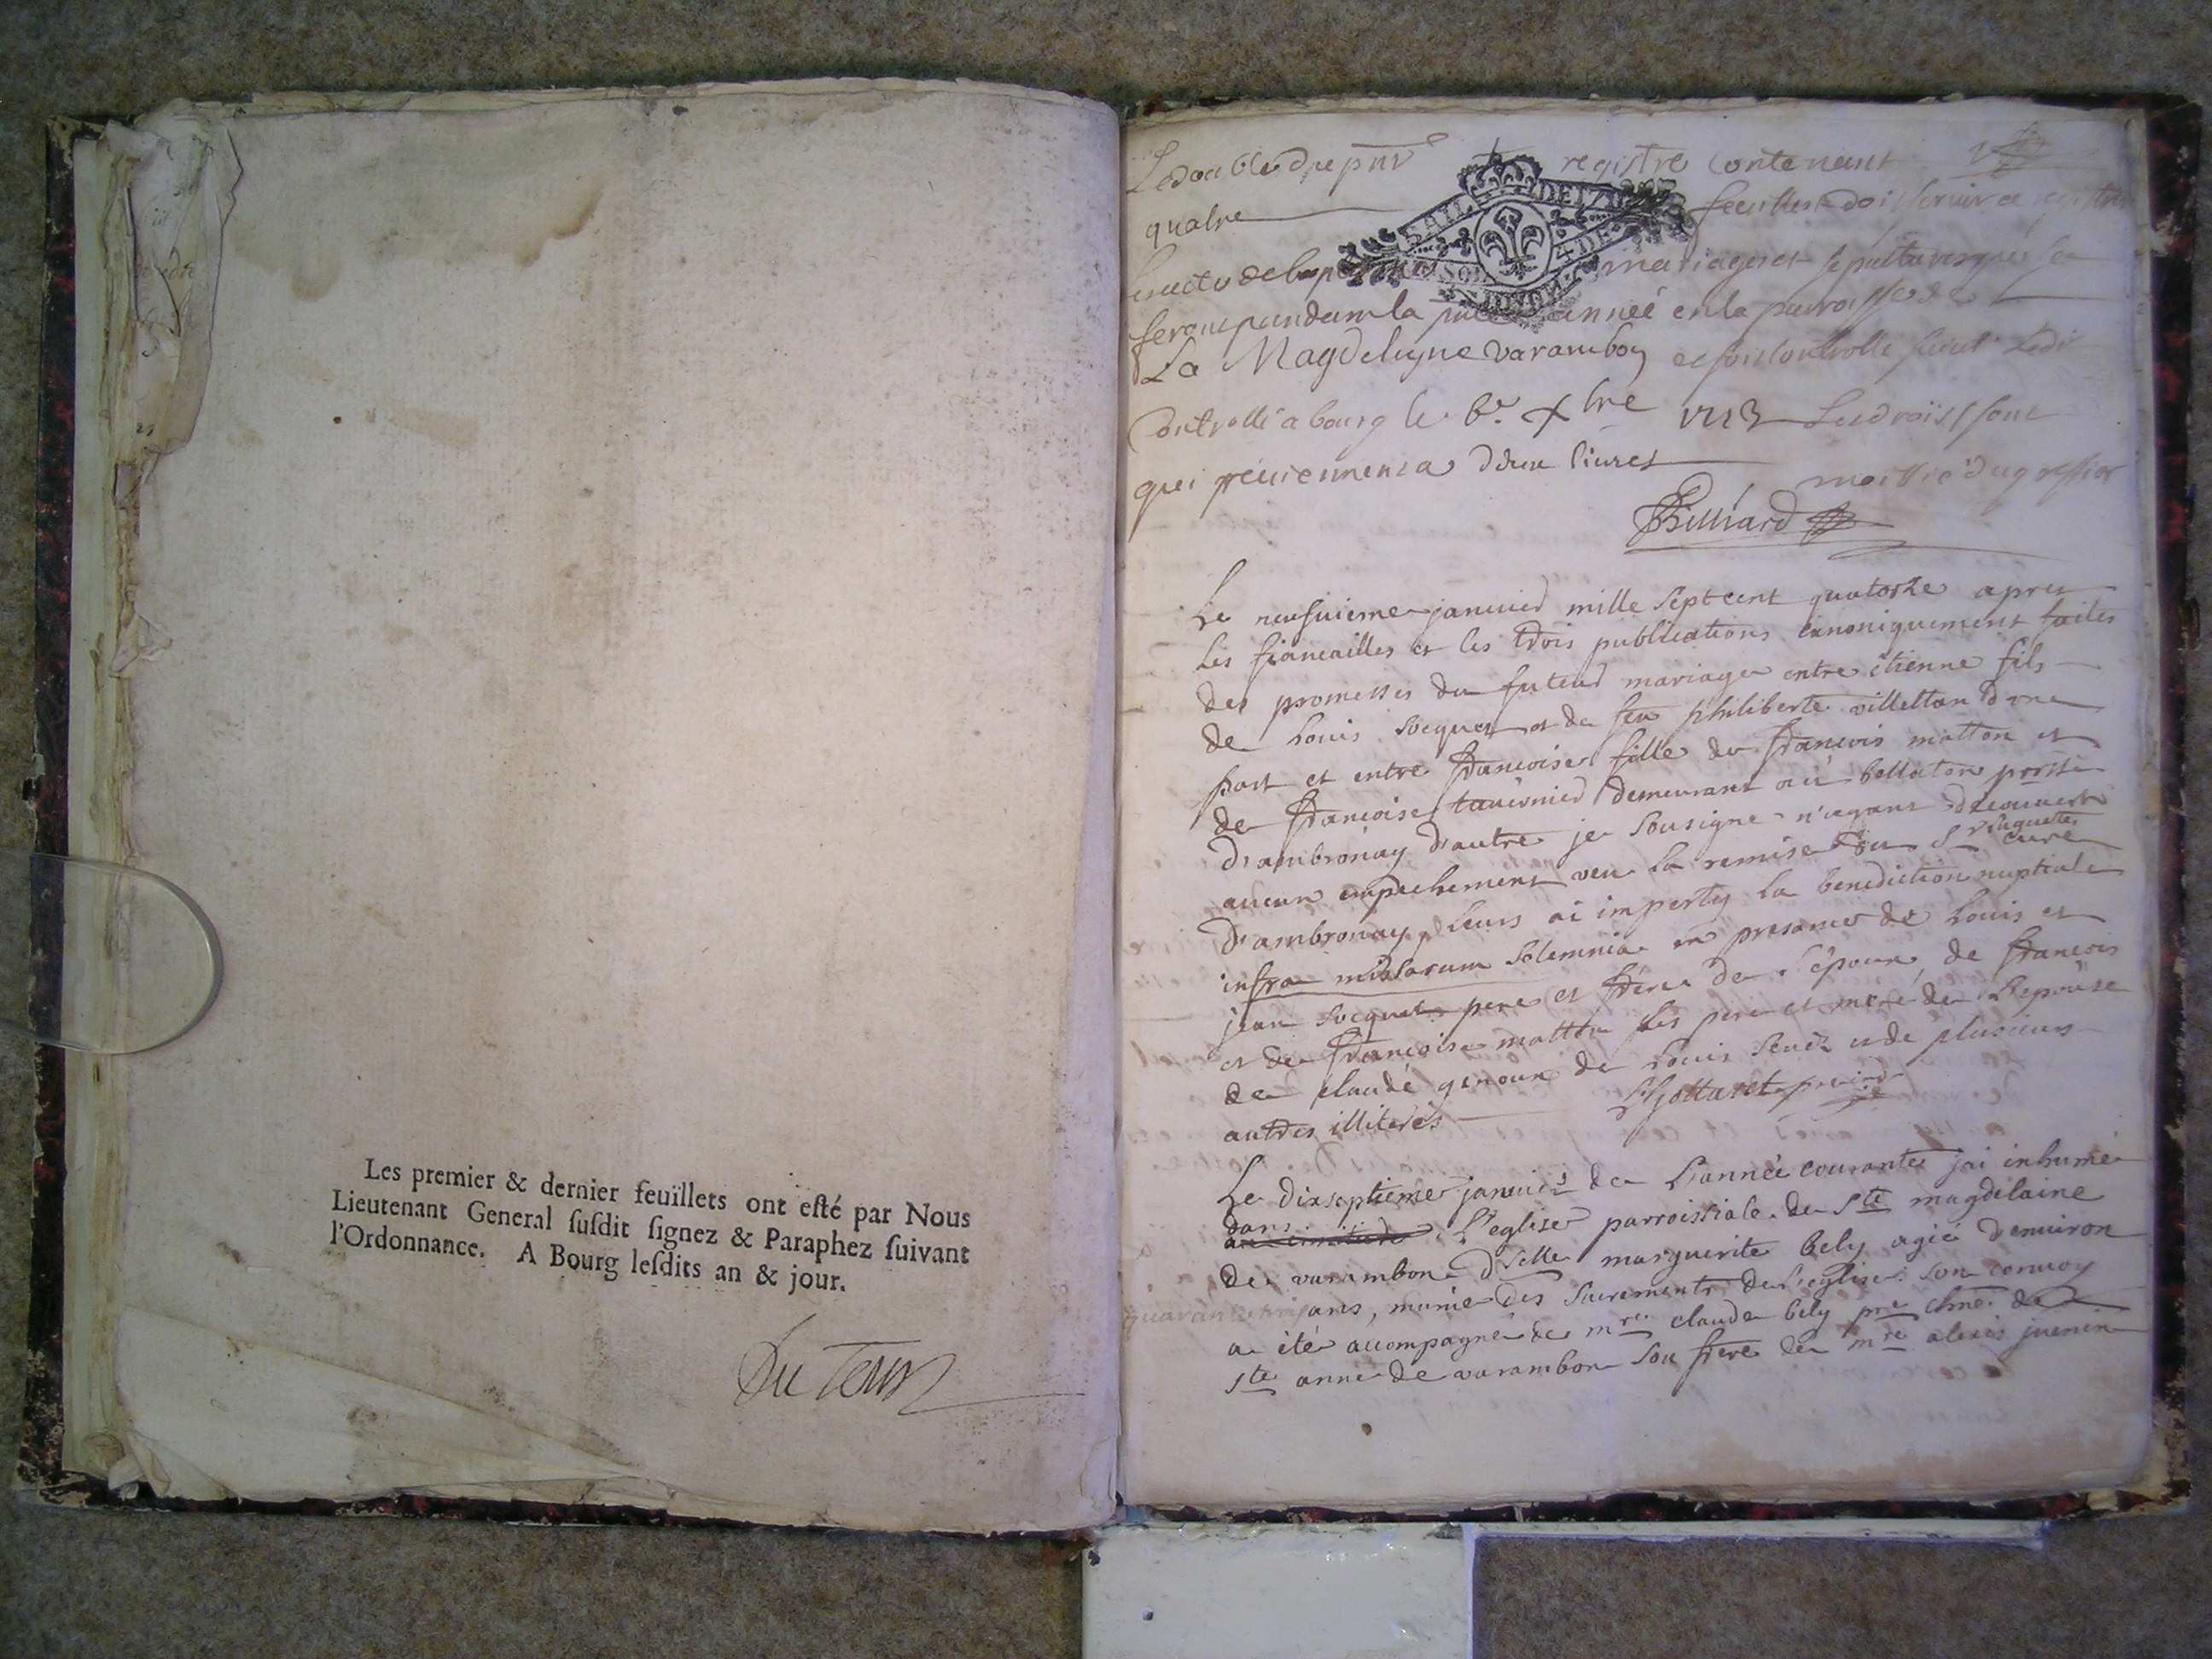 Les premier & dernier feuillets ont esté par Nous
Lieutenant General susdit signez & Paraphez suivant
l'Ordonnance. A Bourg lesdits an & jour.
Du Tour
Le double du pnt registre contenant
quatre feuillets doit servir
mariages et sepultures
la année en la parroisse de
La Magdelayne Varambon
Controllé a bourg le 6e xbre 1713 Les droits sont
qui reviennent a deux livres
moitié du greffier
Billiard
Le neufvieme janvier mille sept cent quatorze apres
les fiancailles et les trois publications canoniquement faites
des promesses du futeur mariage entre étienne fils
de Louis Socquet et de feu philiberte villettan d'vne
part et entre francoise fille de francois matton et
de francoise tavernier demeurant au bellaton prsse
d'ambronay d'autre je sousigne n'ayant découvert
aucun empechement veu la remise du Sr huguette curé
d'ambronay, leurs ai imperty la benediction nuptiale
infra missarum solemnia en presance de Louis et
jean Socquet pere et frere de l'époux, de francois
et de francoise matton les pere et mere de l'epouse
de claude genoux de Louis et de plusieurs
autres illiterés
Le dixseptieme janvier de L'année courante jai inhumé
dans L'eglise parroissiale de Ste magdelaine
de varambon dselle marguerite bely agée d'environ
quarante ans, munie des sacrements de l'eglise. son convoy
a été accompagné de mre claude bely pre chne de
Ste anne de varambon son frere de mre alexis juenin